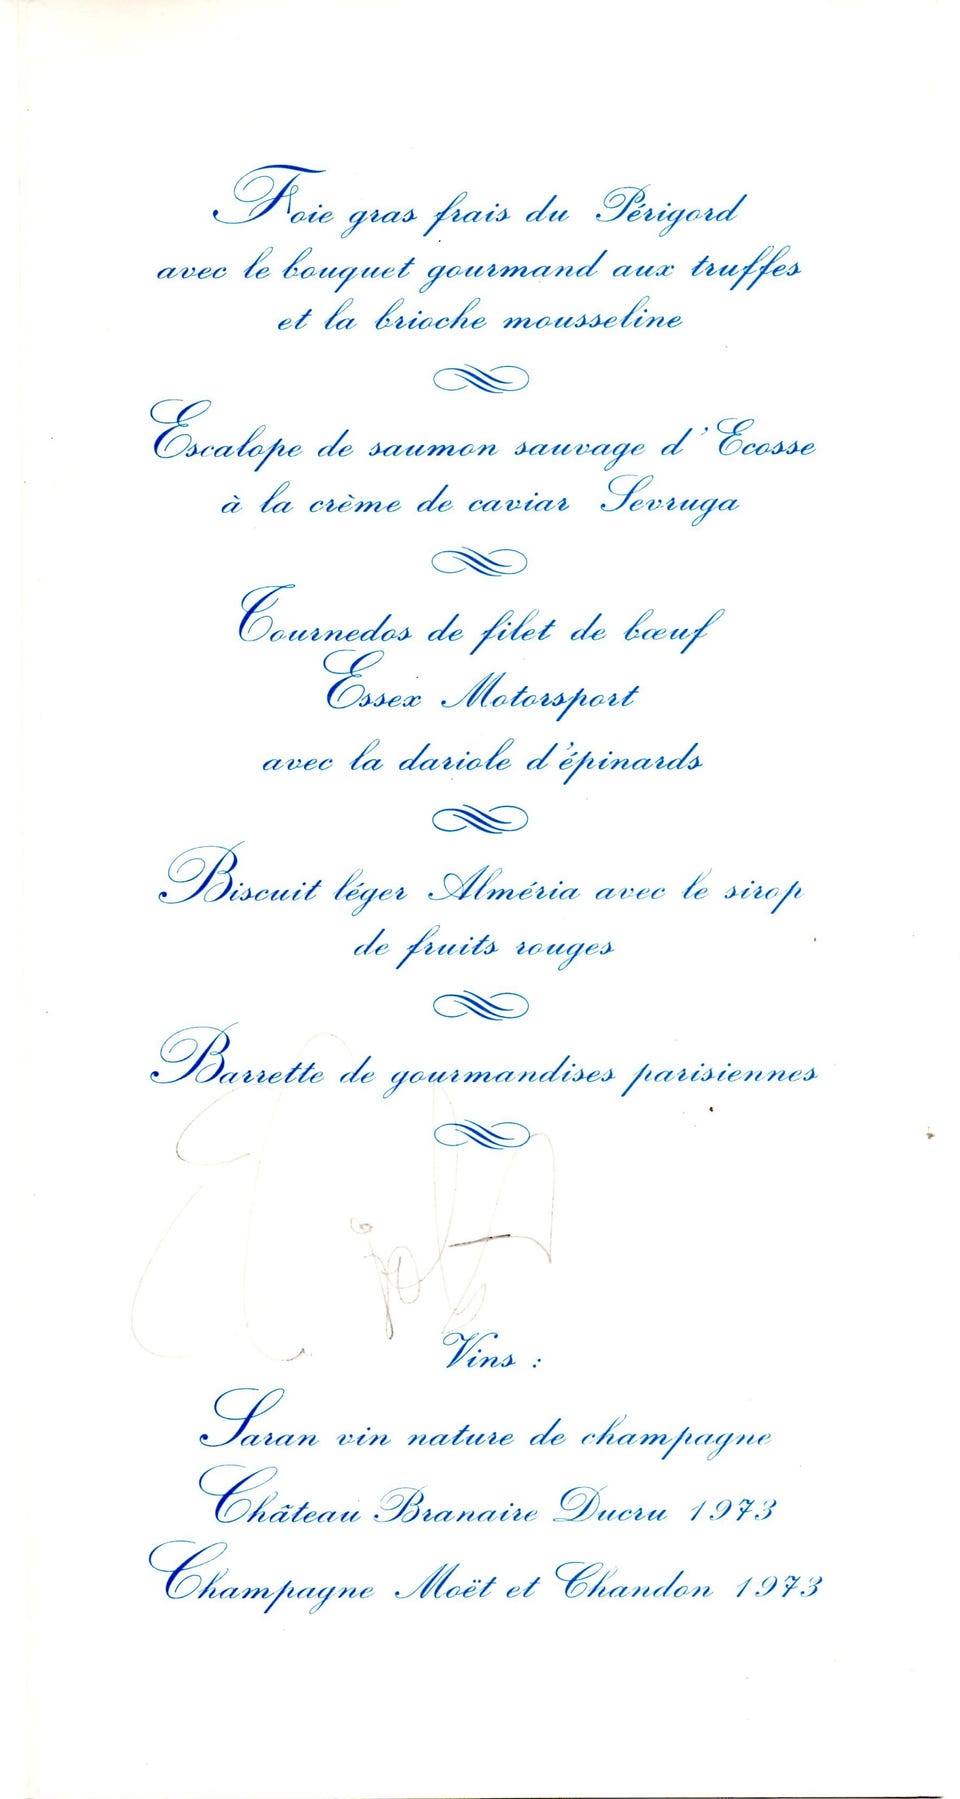 Foie gras frais du Périgord
avec le bouquet gourmand aux truffes
et la brioche mousseline
Escalope de saumon sauvage d'Ecosse
à la crème de caviar Sevruga
Tournedos de filet de bœuf
Essex Motorsport
avec la dariole d'épinards
Biscuit léger Alméria avec le sirop
de fruits rouges
Barrette de gourmandises parisiennes
Vins :
Saran vin nature de champagne
Château Branaire Ducru 1973
Champagne Moët et Chandon 1973